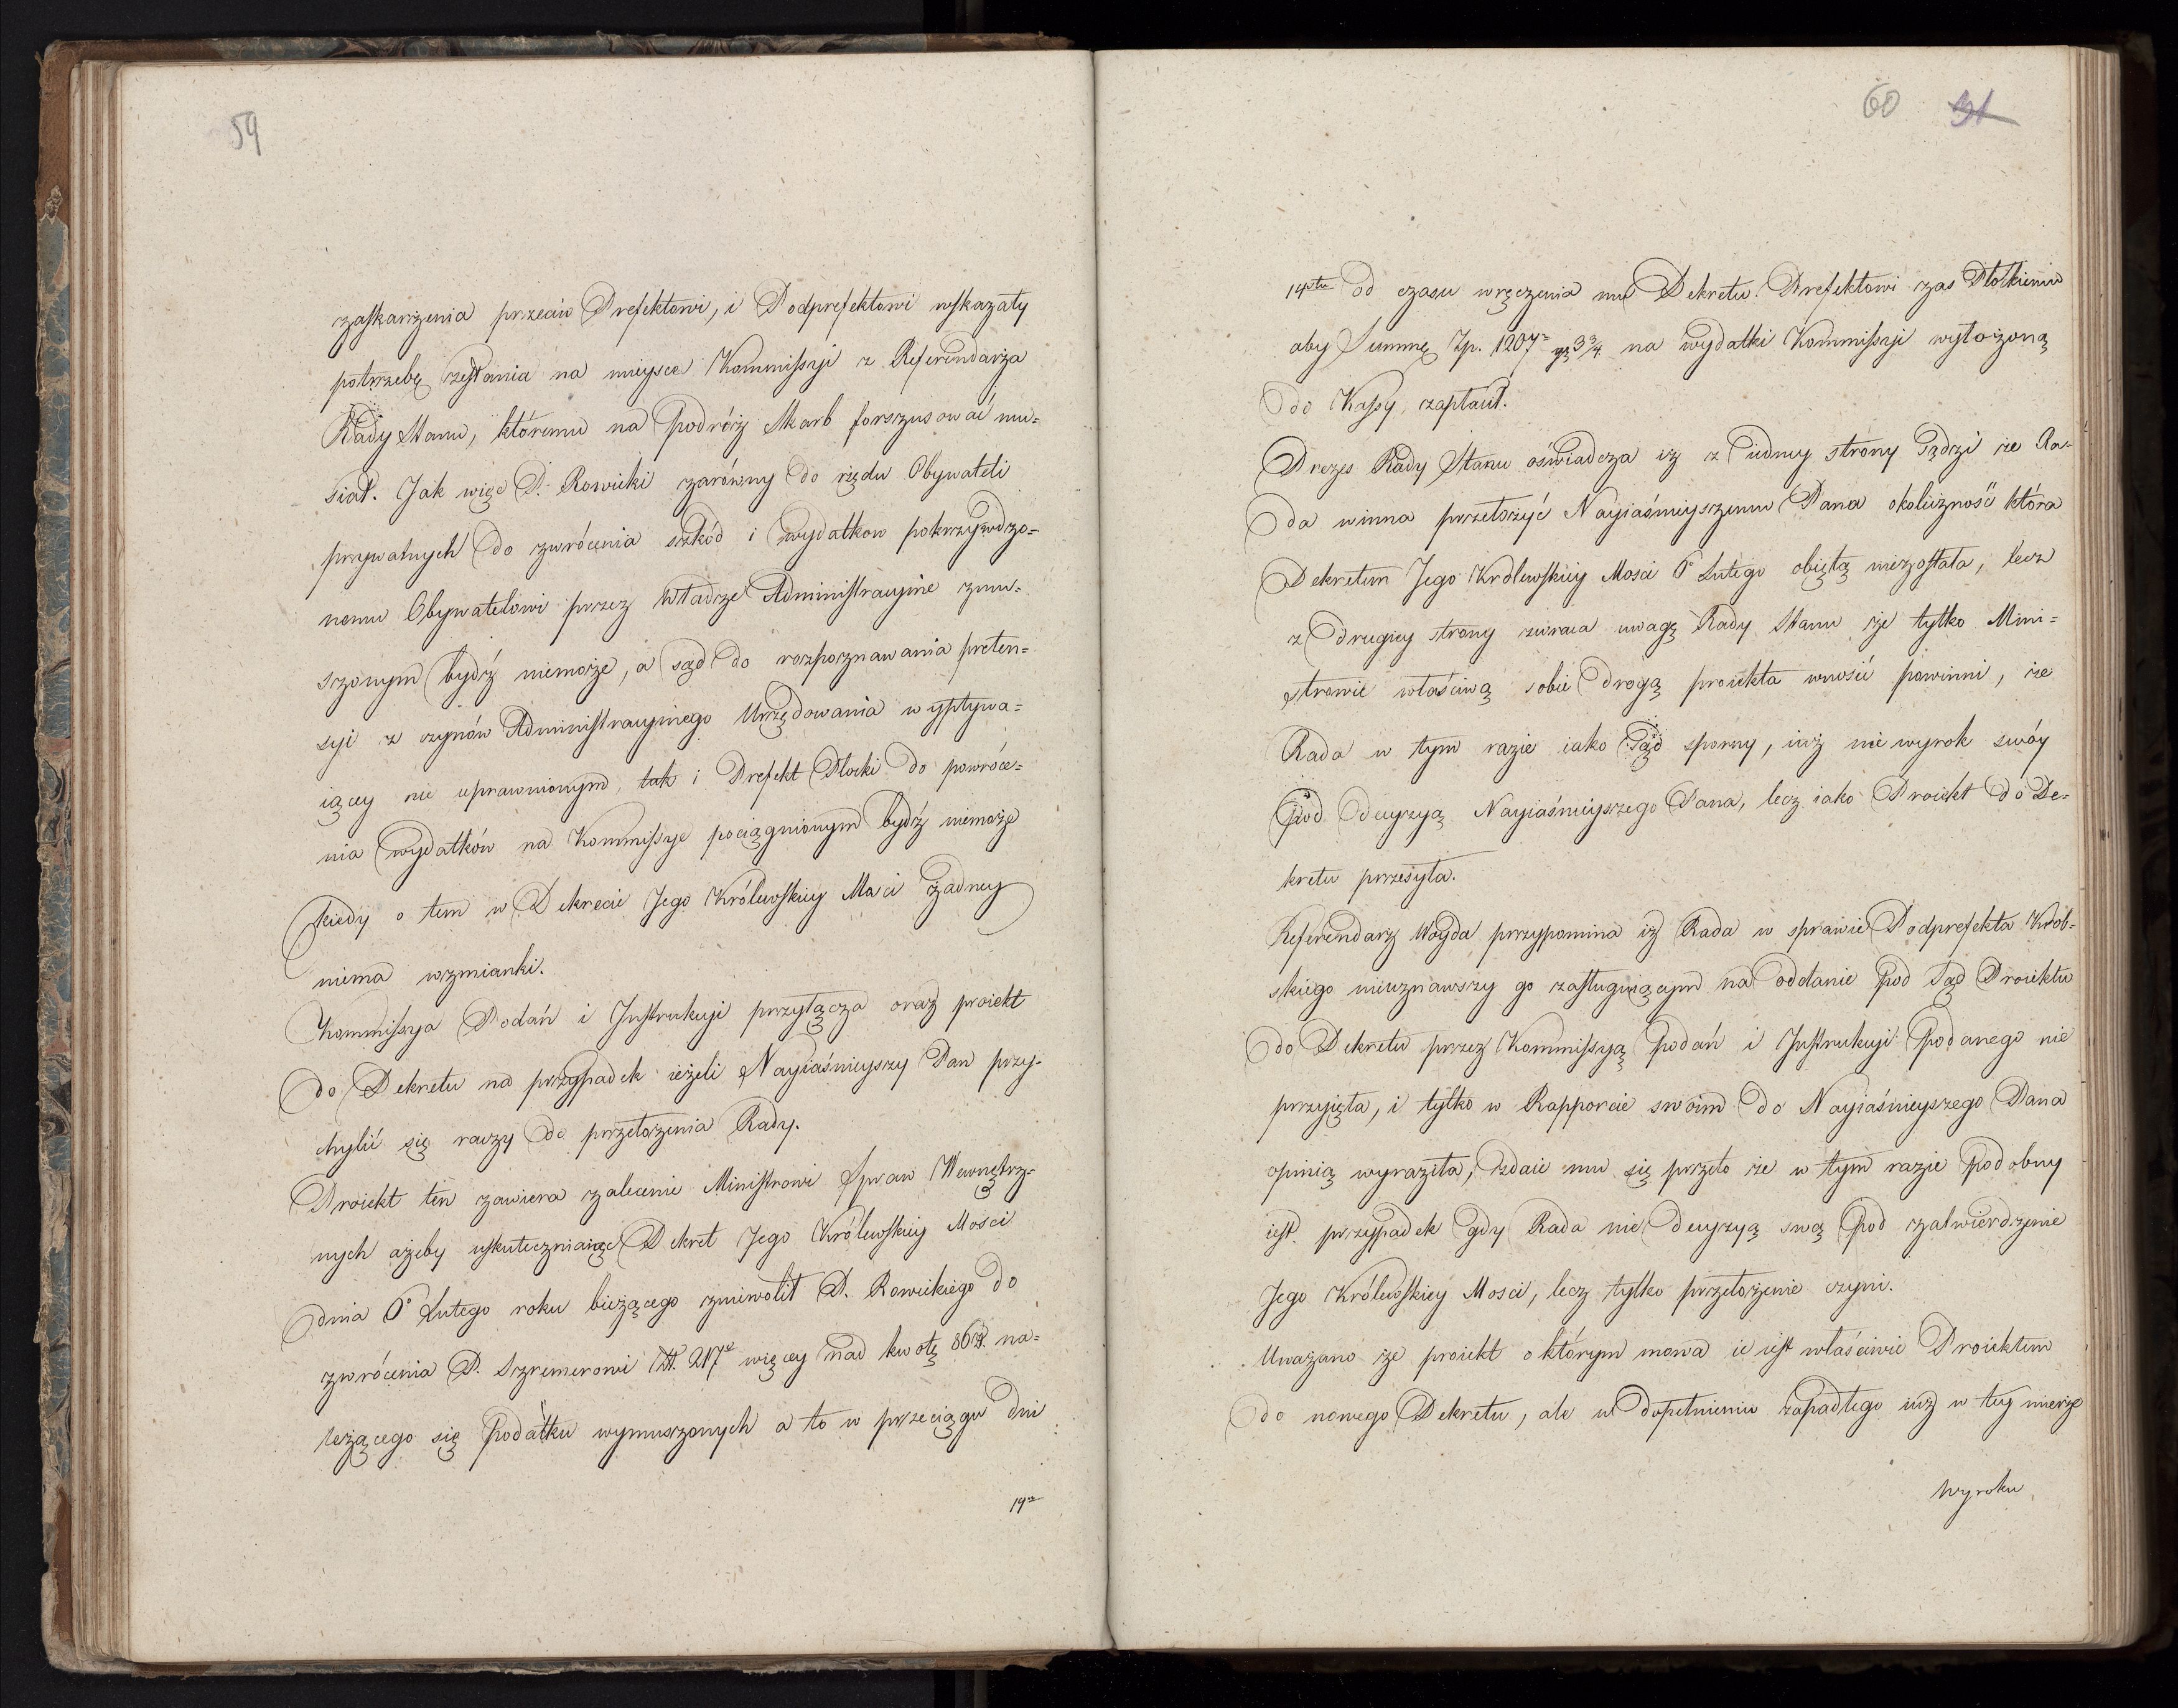 59
zaskarżenia przeciw Prefektowi, i Podprefektowi wskazały
potrzebę zesłania na mieysce Kommissyi z Referendarza
Rady Stanu, któremu na podróż Skarb forszusować mu=
siał. Jak więc P. Rowicki zarówny do rzędu Obywateli
prywatnych do zwrócenia szkód i wydatkow pokrzywdzo=
nemu Obywatelowi przez Władze Administracyine zmu=
szonym bydź niemoże, a sąd do rozpoznawania preten=
syi z czynów Administracyinego Urzędowania wypływa=
iącey nie uprawnionym, tak i Prefekt Płocki do powróce=
nia wydatków na Kommissye pociągnionym bydź niemoże
kiedy o tem w Dekrecie Jego Królewskiey Mości żadney
niema wzmianki.
Kommissya Podań i Instrukcyi przyłącza oraz proiekt
do Dekretu na przypadek ieżeli Nayiaśnieyszy Pan przy-
chylić się raczy do przełożenia Rady.
Proiekt ten zawiera zalecenie Ministrowi Spraw Wewnętrz=
nych ażeby uskuteczniaiąc Dekret Jego Królewskiey Mości
dnia 6° Lutego roku bieżącego zniewolił P. Rowickiego do
zwrócenia P. Szremerowi Zł. 217 więcey nad kwotę 86 zł. na=
leżącego się podatku wymuszonych a to w przeciągu dni
14
60 31
14stu od czasu wręczenia mu Dekretu. Prefektowi zas Płockiemu
aby Summę Zp. 1207 gr 3 3/4 na wydatki Kommissyi wyłożoną
do Kassy, zapłacił.
Prezes Rady Stanu oświadcza iż z iedney strony Sądzi że Ra=
da winna przełożyć Nayiaśnieyszemu Panu okoliczność która
Dekretem Jego Królewskiey Mosci 6° Lutego obiętą niezostała, lecz
z drugiey strony zwraca uwagę Rady Stanu że tylko Mini=
strowie właściwą sobie drogą proiekta wnosić powinni, że
Rada w tym razie iako Sąd sporny, iuż nie wyrok swóy
pod decyzyą Nayiaśnieyszego Pana, lecz iako Proiekt do De=
kretu przesyła.
Referendarz Woyda przypomina iż Rada w sprawie Podprefekta Krob=
skiego nieuznawszy go zasługuiącym na oddanie pod Sąd Proiektu
do Dekretu przez Kommissyą podań i Instrukcyi podanego nie
przyięła, i tylko w Rapporcie swoim do Nayiaśnieyszego Pana
opinią wyraziła, zdaie mu się przeto że w tym razie podobny
iest przypadek gdy Rada nie decyzyą swą pod zatwierdzenie
Jego Królewskiey Mosci, lecz tylko przełożenie czyni.
Uważano że proiekt o którym mowa ie iest właściwie Proiektem
do nowego Dekretu, ale w dopełnieniu zapadłego iuż w tey mierze
Wyroku